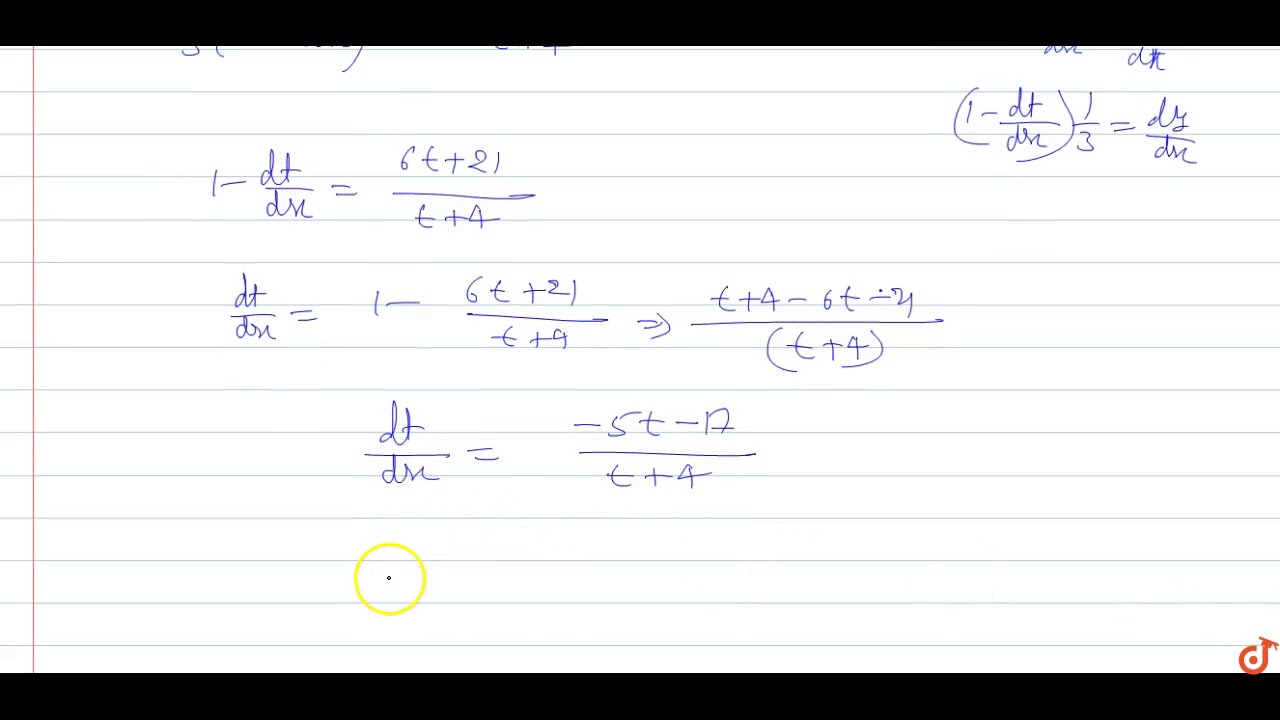 (1 - dt/dx) 1/3 = dy/dx
1 - dt/dx = (6t + 21)/(t + 4)
dt/dx = 1 - (6t + 21)/(t + 4) ⇒ (t + 4 - 6t - 21)/(t + 4)
dt/dx = (-5t - 17)/(t + 4)